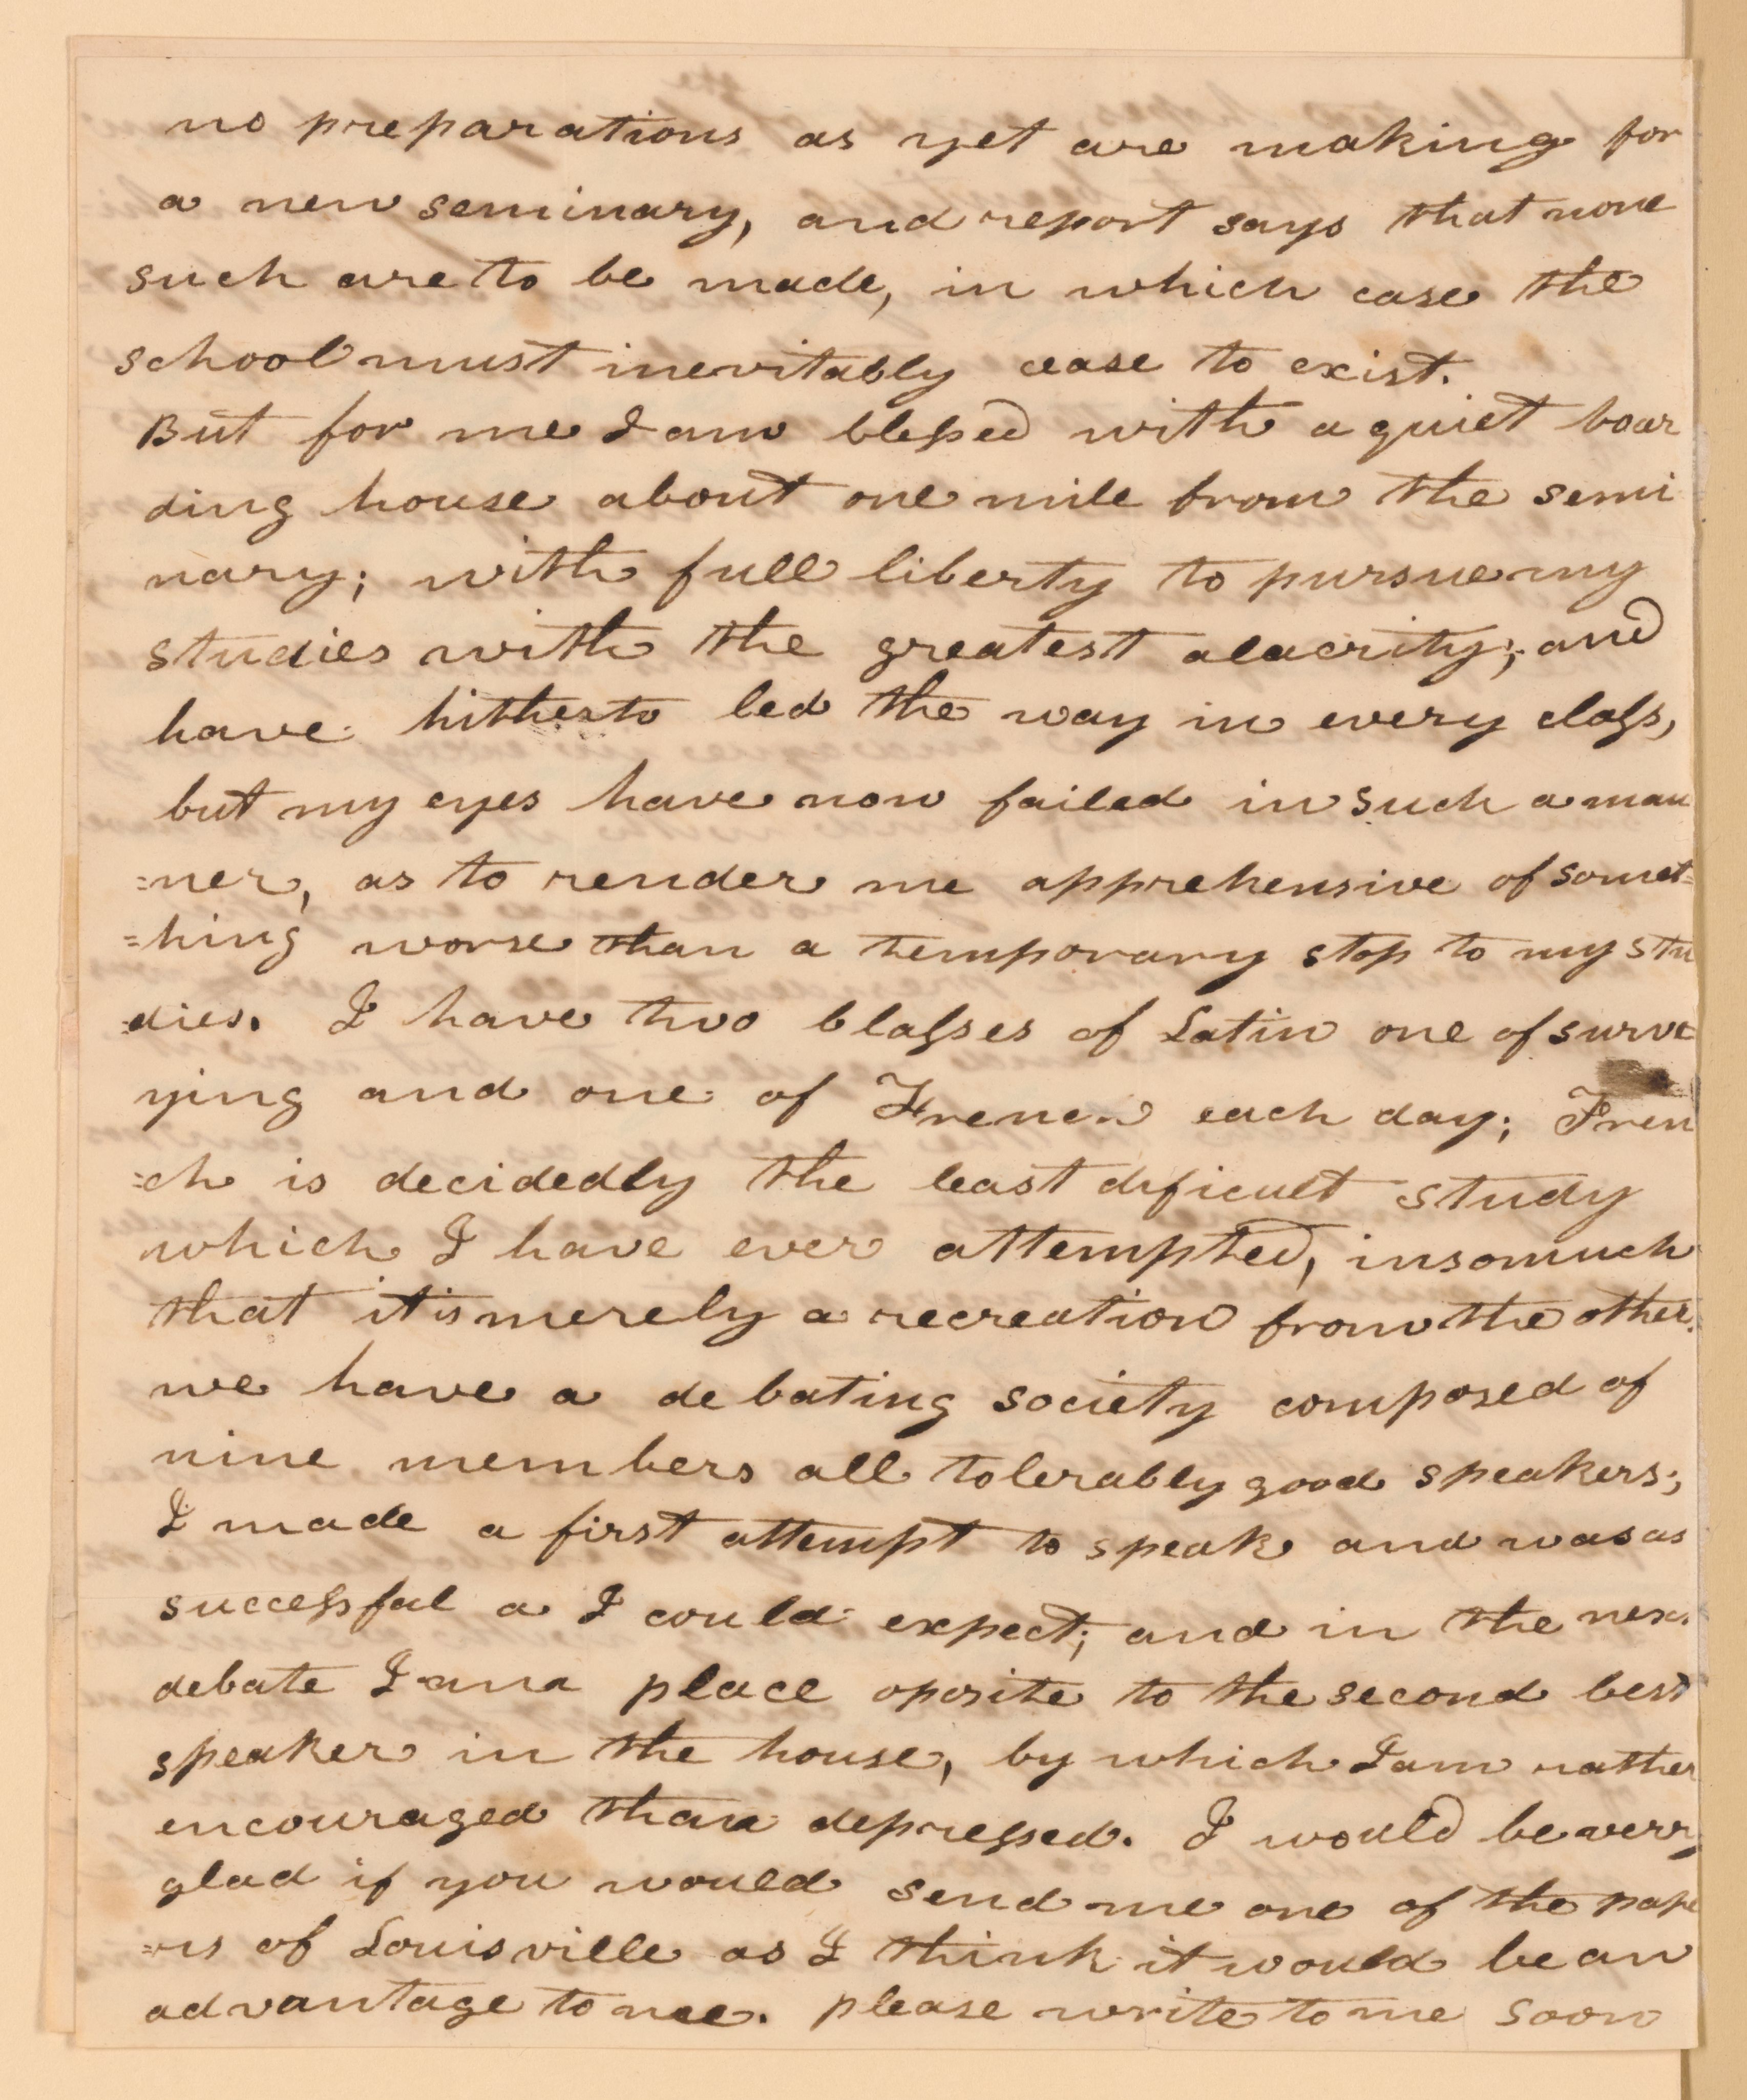 no preparations as yet are making for
a new seminary, and report says that none
such are to be made, in which case the
school must inevitably cease to exist.
But for me I am blessed with a quiet boar
ding house about one mile from the semi
nary; with full liberty to pursue my
studies with the greatest alacrity; and
have hitherto led the way in every class,
but my eyes have now failed in such a man
=ner, as to render me apprehensive of somet=
=hing worse than a temporary stop to my stu
=dies. I have two classes of Latin one of surve
ying and one of French each day; Fren
=ch is decidedly the least dificult study
which I have ever attempted, insomuch
that it is merely a recreation from the other.
we have a debating society composed of
nine members all tolerably good speakers;
I made a first attempt to speak and was as
successful a I could expect; and in the next
debate I am place oposite to the second best
speaker in the house, by which I am rather
encouraged than depressed. I would be very
glad if you would send me one of the pape
=rs of Louisville as I think it would be an
advantage to me. please write to me soon